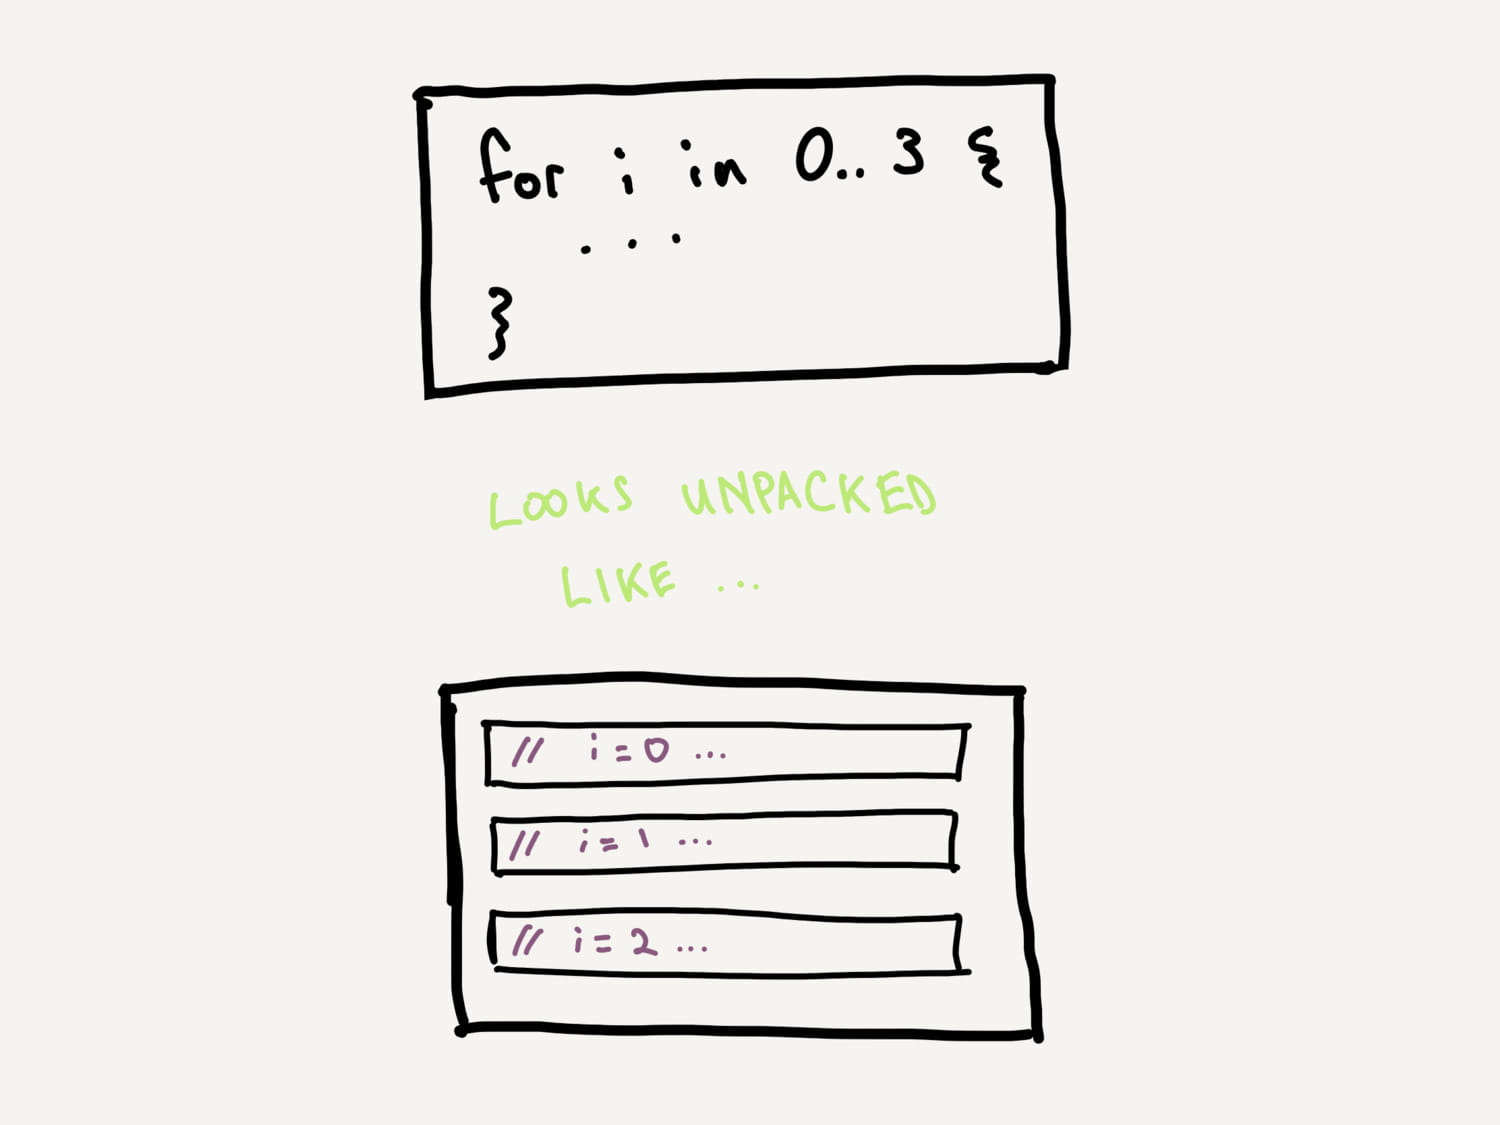 for i in 0..3 {
...
}
LOOKS UNPACKED
LIKE ...
// i=0 ...
// i=1 ...
// i=2 ...